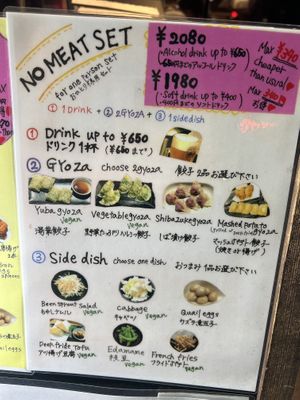 NO MEAT SET
For one person set
¥2080
・Alcohol drink up to ¥650
・650円までのアルコールドリンク
¥1980
・Soft drink up to ¥400
・400円までのソフトドリンク
Max ¥390
cheaper
than usual!
① 1 Drink + ② 2GYoza + ③ 1sidedish
① Drink up to ¥650
ドリンク1杯 (¥650まで)
② GYoza choose 2gyoza 餃子 2品お選び下さい
Yuba gyoza
湯葉餃子
Vegetable gyoza
vegan
Shibazukegyoza
しば漬け餃子
Mashed Potato
gyoza
③ Side dish choose one dish おつまみ 1品お選び下さい
Bean sprout salad
もやしナムル
vegan
Cabbage
キャベツ
vegan
Quail eggs
ウズラ煮玉子
Deep fride Tofu
アツ揚げ豆腐
vegan
Edamame
枝豆
vegan
French fries
フライドポテト
vegan